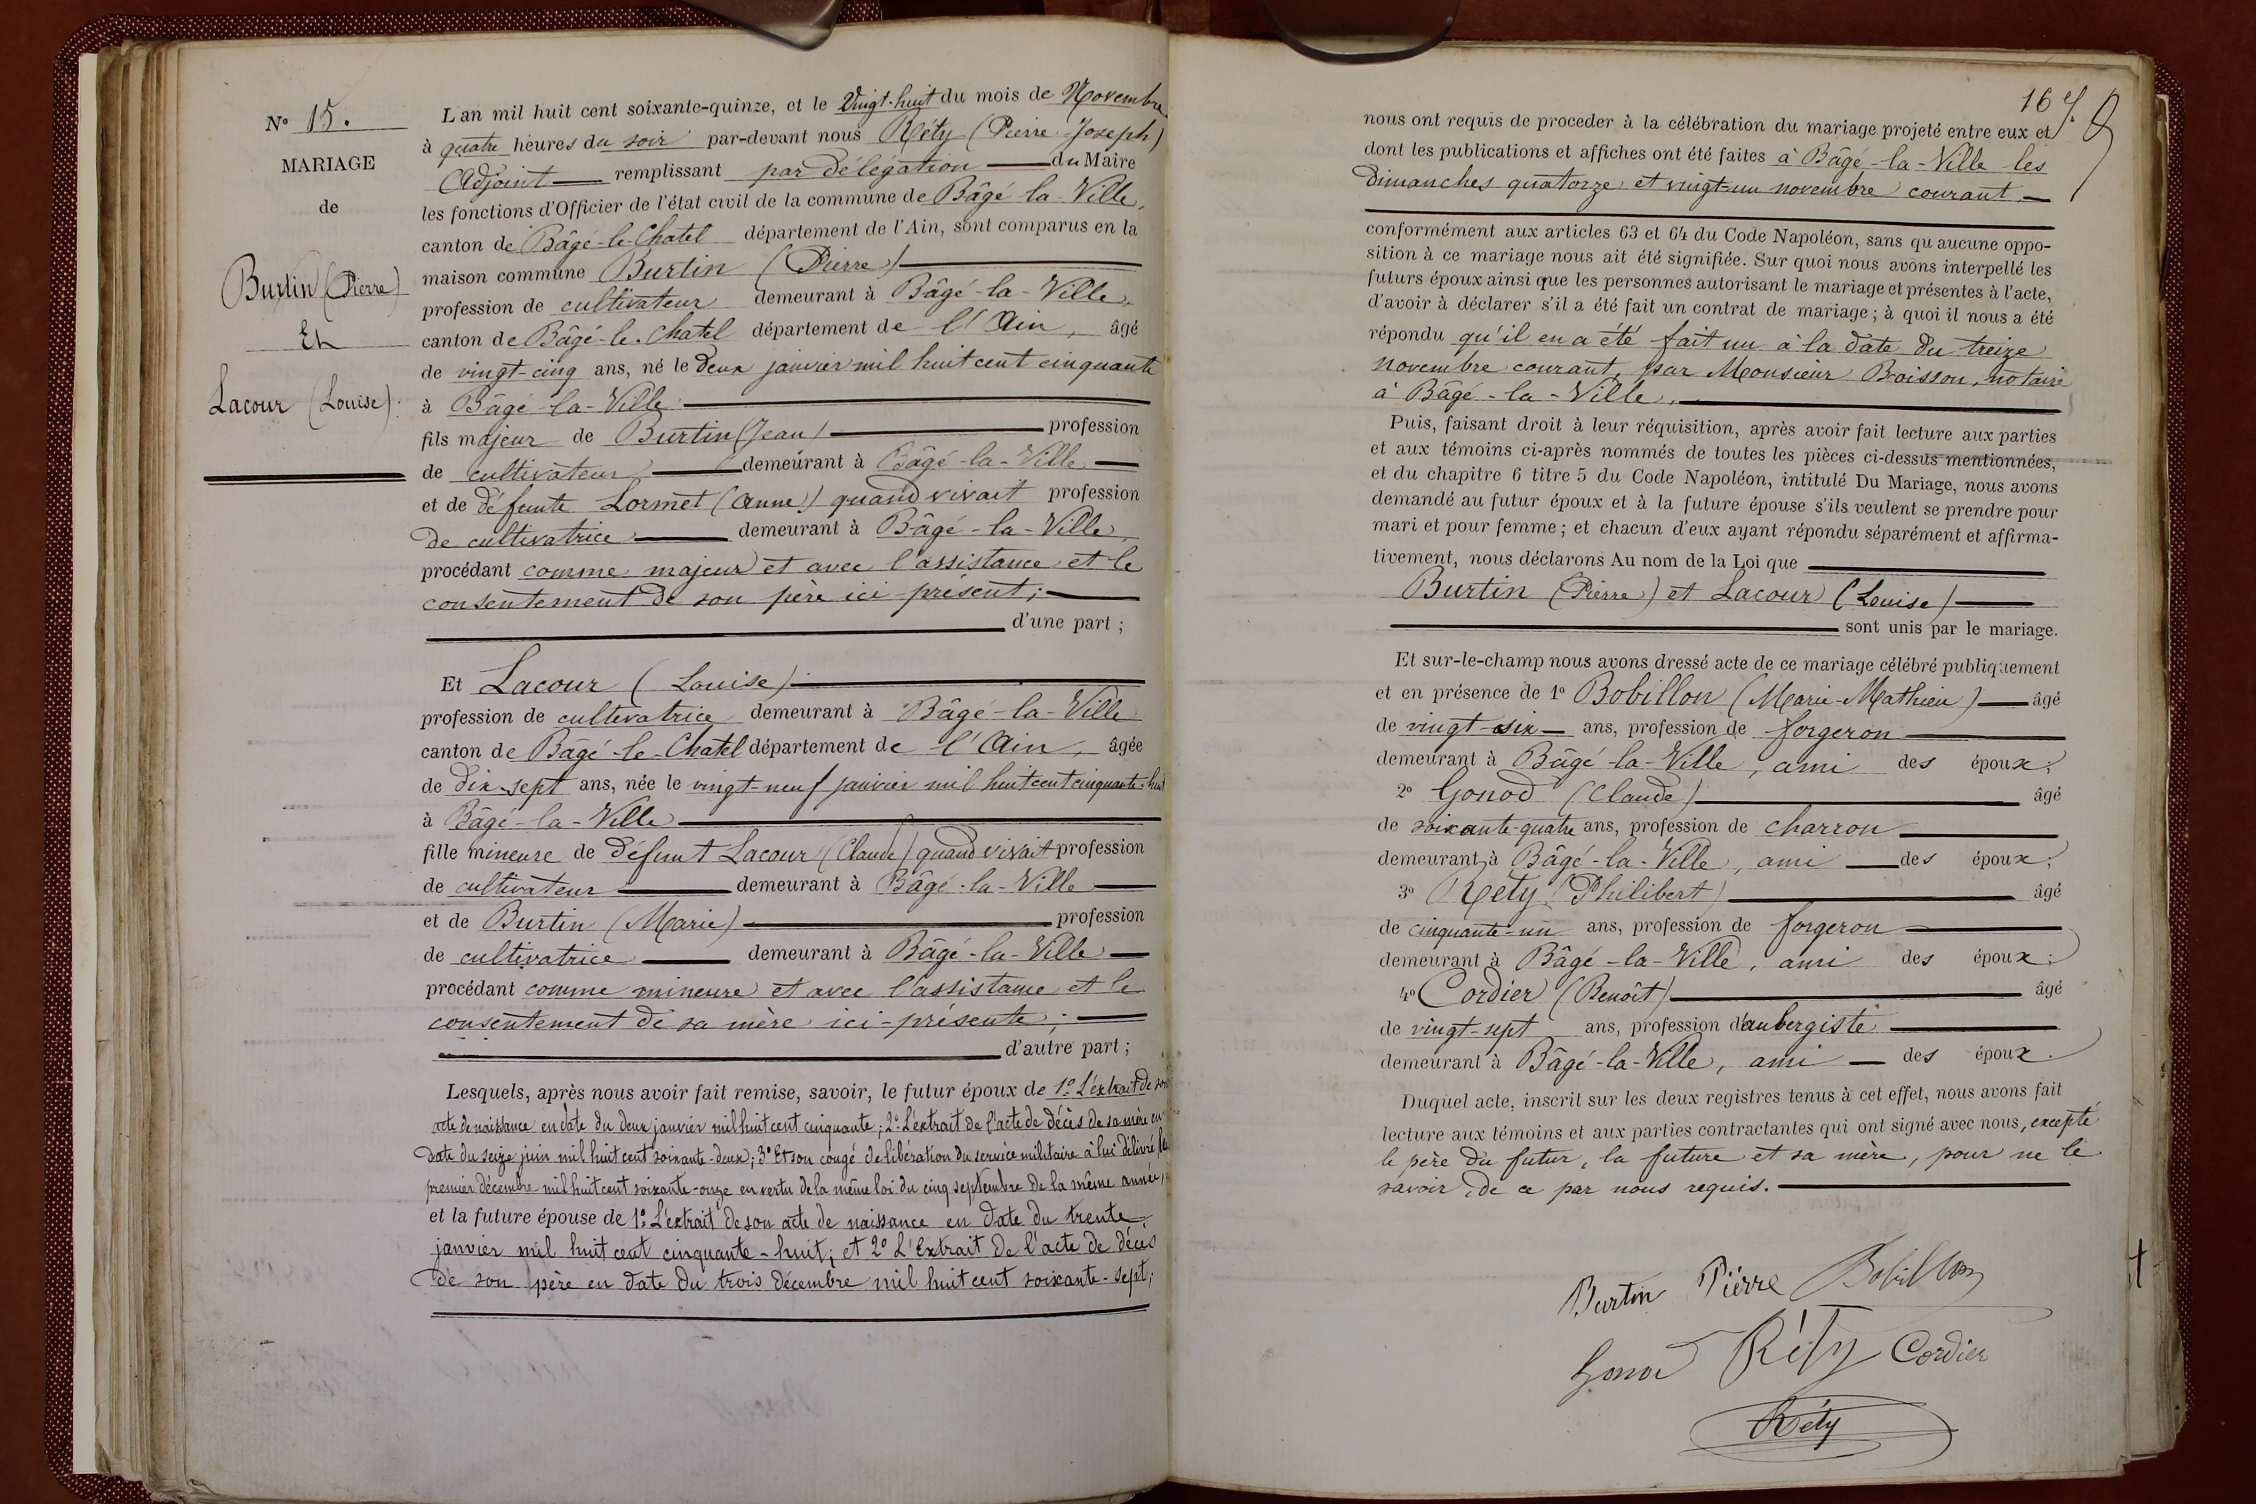 N° 15.
MARIAGE
de
Burtin (Pierre)
Et
Lacour (Louise).
L'an mil huit cent soixante-quinze, et le Vingt-huit du mois de Novembre
à quatre heures du soir par-devant nous Réty (Pierre-Joseph)
Adjoint remplissant par délégation du Maire
les fonctions d'Officier de l'état civil de la commune de Bâgé-la-Ville,
canton de Bâgé-le-Chatel département de l'Ain, sont comparus en la
maison commune Burtin (Pierre)
profession de cultivateur demeurant à Bâgé-la-Ville,
canton de Bâgé-le-Chatel département de l'Ain, âgé
de vingt-cinq ans, né le deux janvier mil huit cent cinquante
à Bâgé-la-Ville
fils majeur de Burtin (Jean) profession
de cultivateur demeurant à Bâgé-la-Ville
et de défunte Lormet (Anne) quand vivait profession
de cultivatrice demeurant à Bâgé-la-Ville,
procédant comme majeur et avec l'assistance et le
consentement de son père ici présent;
d'une part;
Et Lacour (Louise)
profession de cultivatrice demeurant à Bâgé-la-Ville
canton de Bâgé-le-Chatel département de l'Ain, âgée
de dix-sept ans, née le vingt-neuf janvier mil huit cent cinquante-huit
à Bâgé-la-Ville
fille mineure de défunt Lacour (Claude) quand vivait profession
de cultivateur demeurant à Bâgé-la-Ville
et de Burtin (Marie) profession
de cultivatrice demeurant à Bâgé-la-Ville
procédant comme mineure et avec l'assistance et le
consentement de sa mère ici-présente;
d'autre part;
Lesquels, après nous avoir fait remise, savoir, le futur époux de 1° L'extrait de son
acte de naissance en date du deux janvier mil huit cent cinquante; 2° L'extrait de l'acte de décès de sa mère en
date du seize juin mil huit cent soixante-deux; 3° Et son congé de libération du service militaire à lui délivré le
premier décembre mil huit cent soixante-onze en vertu de la même loi du cinq septembre de la même année;
et la future épouse de 1° L'extrait de son acte de naissance en date du trente
janvier mil huit cent cinquante-huit; et 2° L'Extrait de l'acte de décès
de son père en date du trois décembre mil huit cent soixante-sept;
16
nous ont requis de proceder à la célébration du mariage projeté entre eux et
dont les publications et affiches ont été faites à Bâgé-la-Ville les
Dimanches quatorze et vingt-un novembre courant,
conformément aux articles 63 et 64 du Code Napoléon, sans qu'aucune oppo-
sition à ce mariage nous ait été signifiée. Sur quoi nous avons interpellé les
futurs époux ainsi que les personnes autorisant le mariage et présentes à l'acte,
d'avoir à déclarer s'il a été fait un contrat de mariage; à quoi il nous a été
répondu qu'il en a été fait un à la date du treize
novembre courant, par Monsieur Boisson, notaire
à Bâgé-la-Ville.
Puis, faisant droit à leur réquisition, après avoir fait lecture aux parties
et aux témoins ci-après nommés de toutes les pièces ci-dessus mentionnées,
et du chapitre 6 titre 5 du Code Napoléon, intitulé Du Mariage, nous avons
demandé au futur époux et à la future épouse s'ils veulent se prendre pour
mari et pour femme; et chacun d'eux ayant répondu séparément et affirma-
tivement, nous déclarons Au nom de la Loi que
Burtin (Pierre) et Lacour (Louise)
sont unis par le mariage.
Et sur-le-champ nous avons dressé acte de ce mariage célébré publiquement
et en présence de 1° Bobillon (Marie-Mathieu) âgé
de vingt-six ans, profession de forgeron
demeurant à Bâgé-la-Ville, ami des époux;
2° Gonod (Claude) âgé
de soixante-quatre ans, profession de charron
demeurant à Bâgé-la-Ville, ami des époux;
3° Réty (Philibert) âgé
de cinquante-un ans, profession de forgeron
demeurant à Bâgé-la-Ville, ami des époux;
4° Cordier (Benoît) âgé
de vingt-sept ans, profession d'aubergiste
demeurant à Bâgé-la-Ville, ami des époux.
Duquel acte, inscrit sur les deux registres tenus à cet effet, nous avons fait
lecture aux témoins et aux parties contractantes qui ont signé avec nous, excepté
le père du futur, la future et sa mère, pour ne le
savoir, de ce par nous requis.
Burtin Pierre Bobillon
Gonod Réty Cordier
Réty